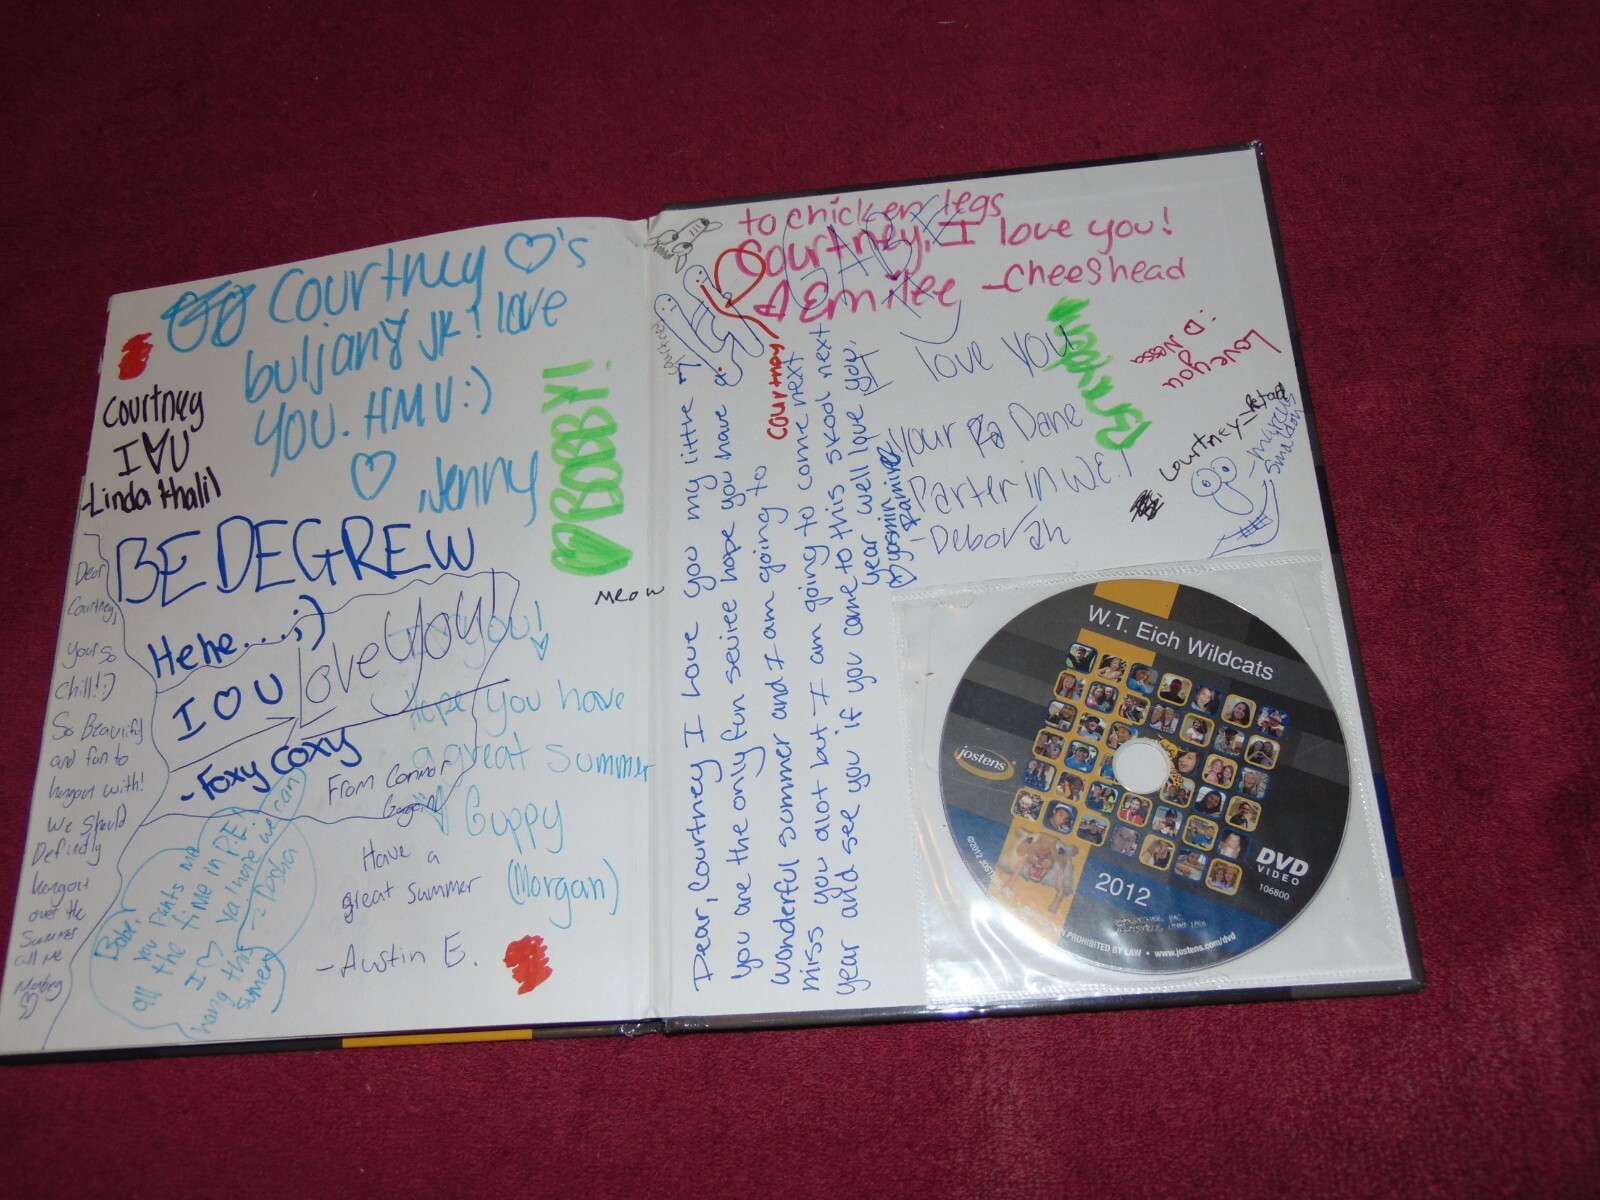 Courtney ♡'s
buljany JK! love
YOU. HMU:)
♡ Jenny
BOBBY!
Courtney
I ♡ U
-Linda Khalil
BE DEGREW
Hehe....;)
I ♡ U
-Foxy Coxy
Love you!
Dear
Courtney,
your so
chill!:)
So Beautiful
and fun to
hangout with!
We should
Definetly
hangout
over the
Summer
call me
Hope you have
a great summer
Guppy
(Morgan)
From Connor
Have a
great summer
-Austin E.
Babe,
you pants me
all the time in P.E.!
I ♡ ya! hope we can
hang this
-Tasha
Meow
to chicken legs
Courtney, I love you!
Emilee -Cheeshead
GABE
Courtney
Dear, Courtney I Love you my little
you are the only fun seviree hope you have a
wonderful summer and I am going to
miss you alot but I am going to come next
year and see you if you came to this skool next
year well love you.
♡ yasmin Ramirez
love you
your Pa Dane
Parter in W.E.!
-Deborah
Love
you
:D Nessa
Courtney
-Marcus
W.T. Eich Wildcats
jostens
2012
DVD
VIDEO
106800
©2012 JOSTENS
PROHIBITED BY LAW • www.jostens.com/dvd